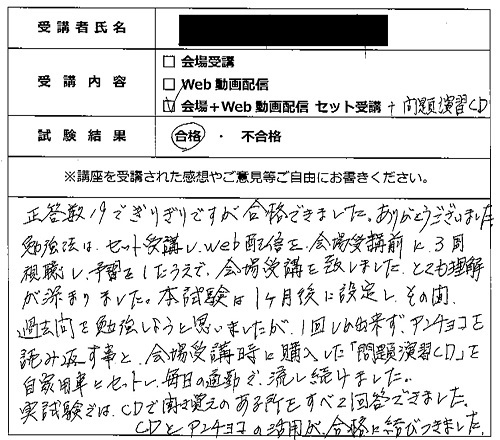 受講者氏名
受講内容
□ 会場受講
□ Web 動画配信
☑ 会場+Web 動画配信 セット受講 + 問題演習CD
試験結果
合格 ・ 不合格
※講座を受講された感想やご意見等ご自由にお書きください。
正答数19でぎりぎりですが合格できました。ありがとうございました
勉強法は、セット受講し、web配信を、会場受講前に、3回
視聴し、予習をしたうえで、会場受講を致しました。とても理解
が深まりました。本試験は1ヶ月後に設定し、その間、
過去問を勉強しようと思いましたが、1回しか出来ず、アンチョコを
読み返す事と、会場受講時に購入した「問題演習CD」を
自家用車にセットし、毎日の通勤で、流し続けました。
実試験では、CDで聞き覚えのある所をすべて回答できました。
CDとアンチョコの活用が、合格に結びつきました。